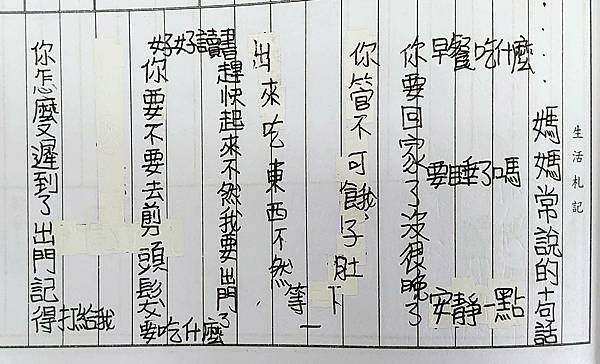 生活札記
媽媽常說的十句話
早餐吃什麼
要睡了嗎
安靜一點
你要回家了沒很晚了
你管不可餓我,子肚
出來吃東西不然等一下
趕快起來不然我要出門了
好好讀書
你要不要去剪頭髮
要吃什麼
你怎麼又遲到了
出門記得打給我